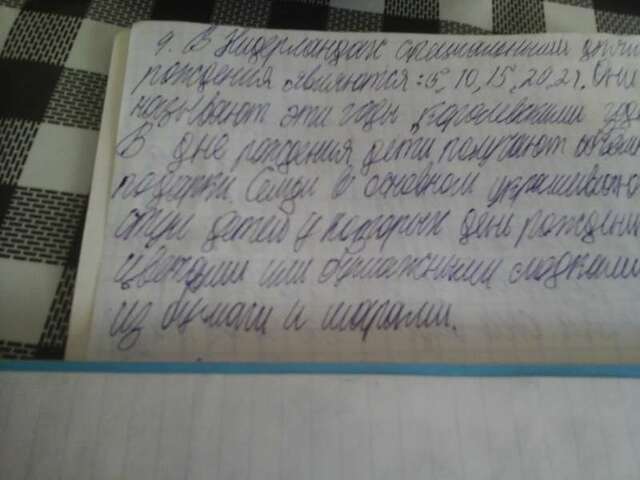 9. В Нидерландах специальными днями
рождения являются: 5, 10, 15, 20, 21. Они
называют эти годы "королевскими
В дне рождения дети получают
подарки. Семьи в основном украшивают
стул детей у которых день рождения
цветами или бумажными сладкими
из бумаги и шарами.